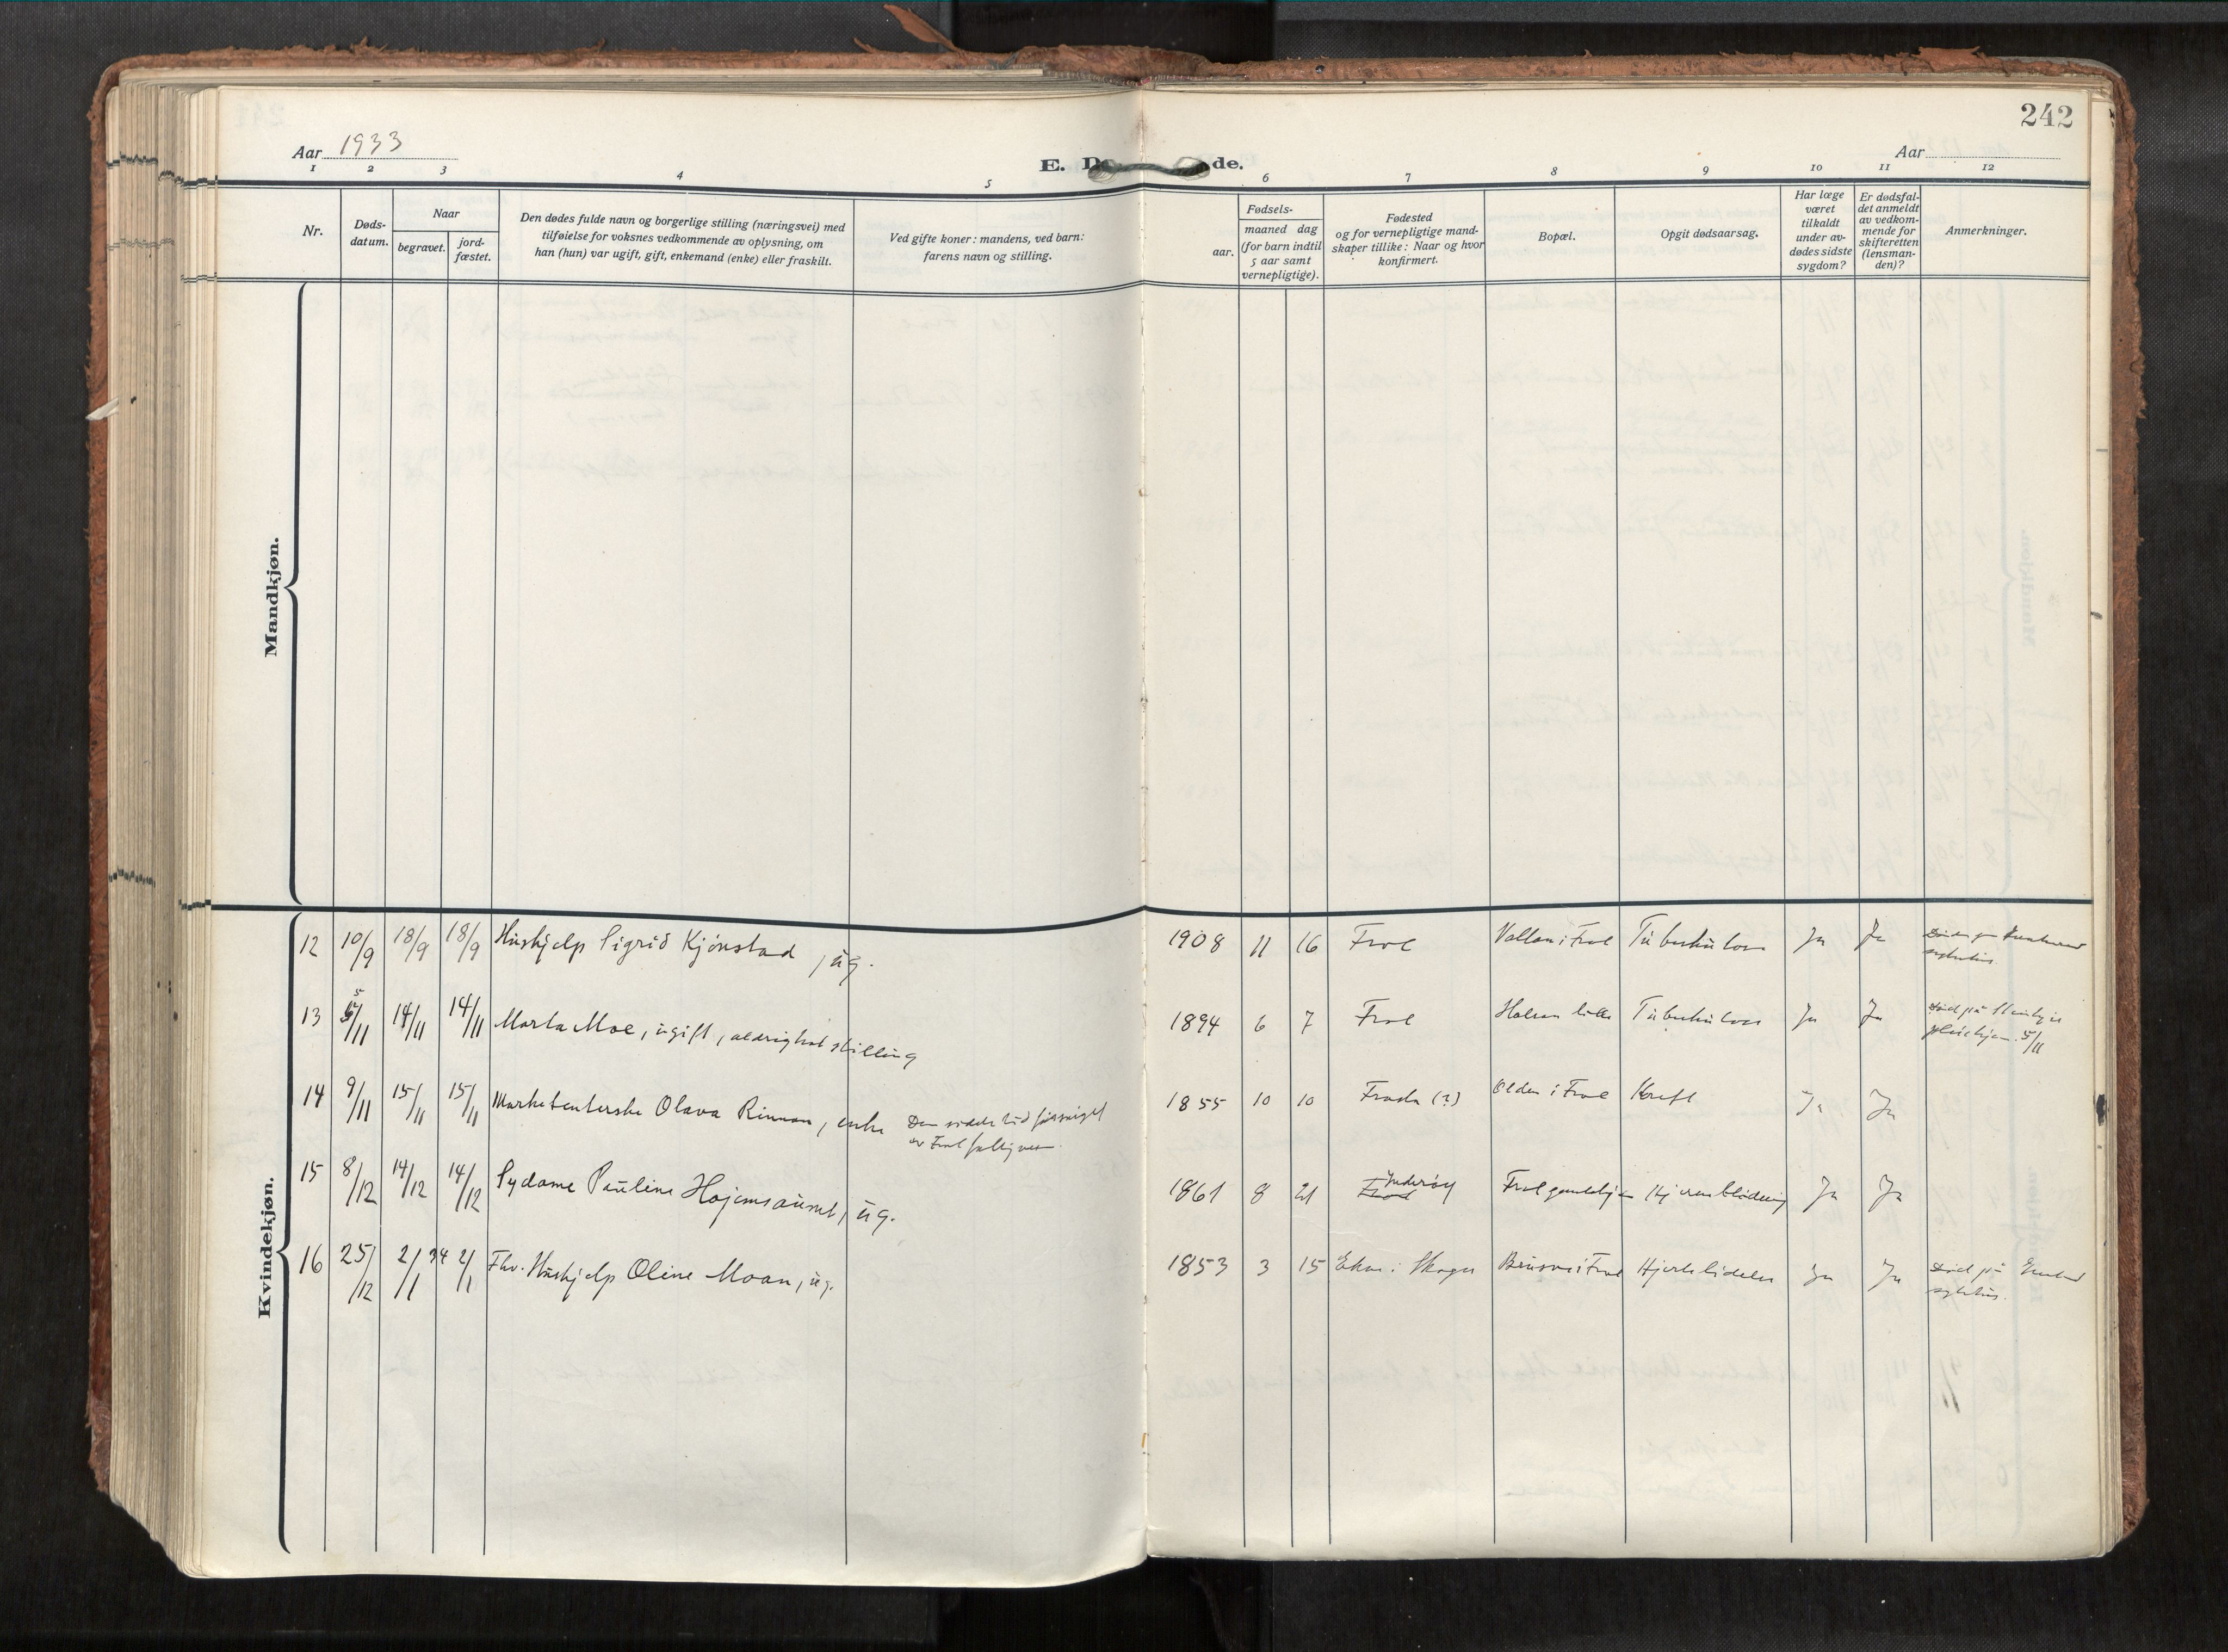 242
Aar 1933
E. D de.
Aar
1 2 3 4 5 6 7 8 9 10 11 12
Nr.
Døds-
datum.
Naar
begravet.
jord-
fæstet.
Den dødes fulde navn og borgerlige stilling (næringsvei) med
tilføielse for voksnes vedkommende av oplysning, om
han (hun) var ugift, gift, enkemand (enke) eller fraskilt.
Ved gifte koner: mandens, ved barn:
farens navn og stilling.
Fødsels-
aar.
maaned dag
(for barn indtil
5 aar samt
vernepligtige).
Fødested
og for vernepligtige mand-
skaper tillike: Naar og hvor
konfirmert.
Bopæl.
Opgit dødsaarsag.
Har læge
været
tilkaldt
under av-
dødes sidste
sygdom?
Er dødsfal-
det anmeldt
av vedkom-
mende for
skifteretten
(lensman-
den)?
Anmerkninger.
Mandkjøn.
Kvindekjøn.
12 10/9 18/9 18/9 Hushjelp Sigrid Kjønstad, ug. 1908 11 16 Frol Vollan i Frol Tuberkulose Ja Ja
sykehus.
13 5/11 14/11 14/11 Marta Moe, ugift, aldri hat stilling 1894 6 7 Frol Halsan lille Tuberkulose Ja Ja Død på
pleiehjem. 5/11
14 9/11 15/11 15/11 Marketenterske Olava Rinnan, enke Den siste tid forsørget 1855 10 10 Frosta (?) Olden i Frol Kreft Ja Ja
av Frol
15 8/12 14/12 14/12 Sydame Pauline Højemsaunet, ug. 1861 8 21 Frol Inderøy Frol gamlehjem Hjerneblødning Ja Ja
16 25/12 2/1 34 2/1 Fhv. Hushjelp Oline Moan, ug. 1853 3 15 i Skogn i Frol Hjertelidelse Ja Ja Død på
sykehus.